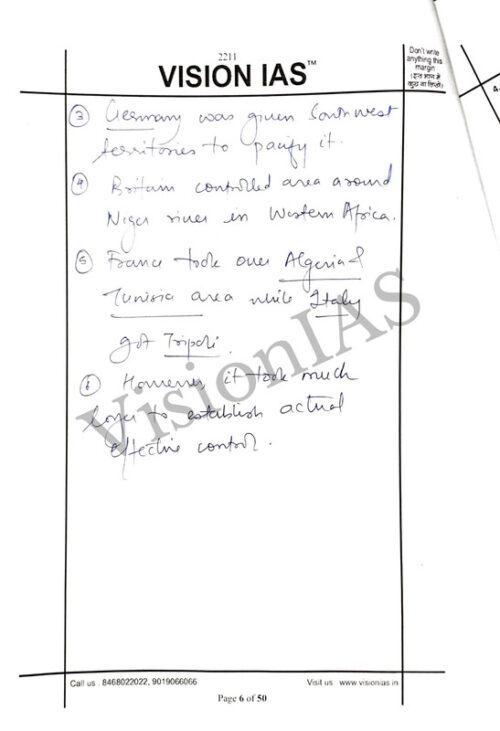 2211
VISION IAS™
Don't write
anything this
margin
(इस भाग में
कुछ ना लिखें)
③ Germany was given Southwest
territories to pacify it.
④ Britain controlled area around
Niger river in Western Africa.
⑤ France took over Algeria &
Tunisia area while Italy
got Tripoli.
⑥ However, it took much
longer to establish actual
effective control.
VisionIAS
Call us : 8468022022, 9019066066
Visit us : www.visionias.in
Page 6 of 50